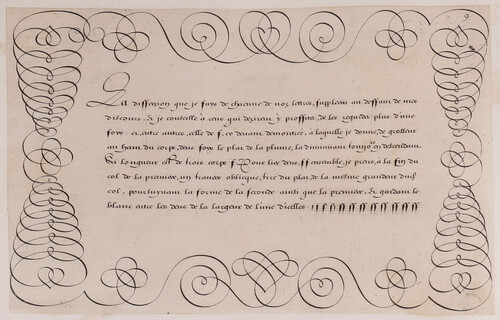 9
La dissection que je faxe de chacune de noz lettres, suppleera au deffaut de mes
discours. Et je conseille à ceux qui dezirent y proffiter, de les regarder plus d'une
foys: et, entre autres, celle de f. cy devant demontrée, à laquelle je donne de grosseur
au haut du corps, deux foys le plat de la plume, la diminuant toujours en descendant.
Sa longueur est de trois corps f. Pour lier deux ff. ensemble, je prens, à la fin du
col de la premiere, un travers oblique, tiré du plat, de la mesme grandeur dudit
col, poursuyvant la forme de la seconde ainsi que la premiere, Et gardant le
blanc entre les deux de la largeur de l'une d'icelles.